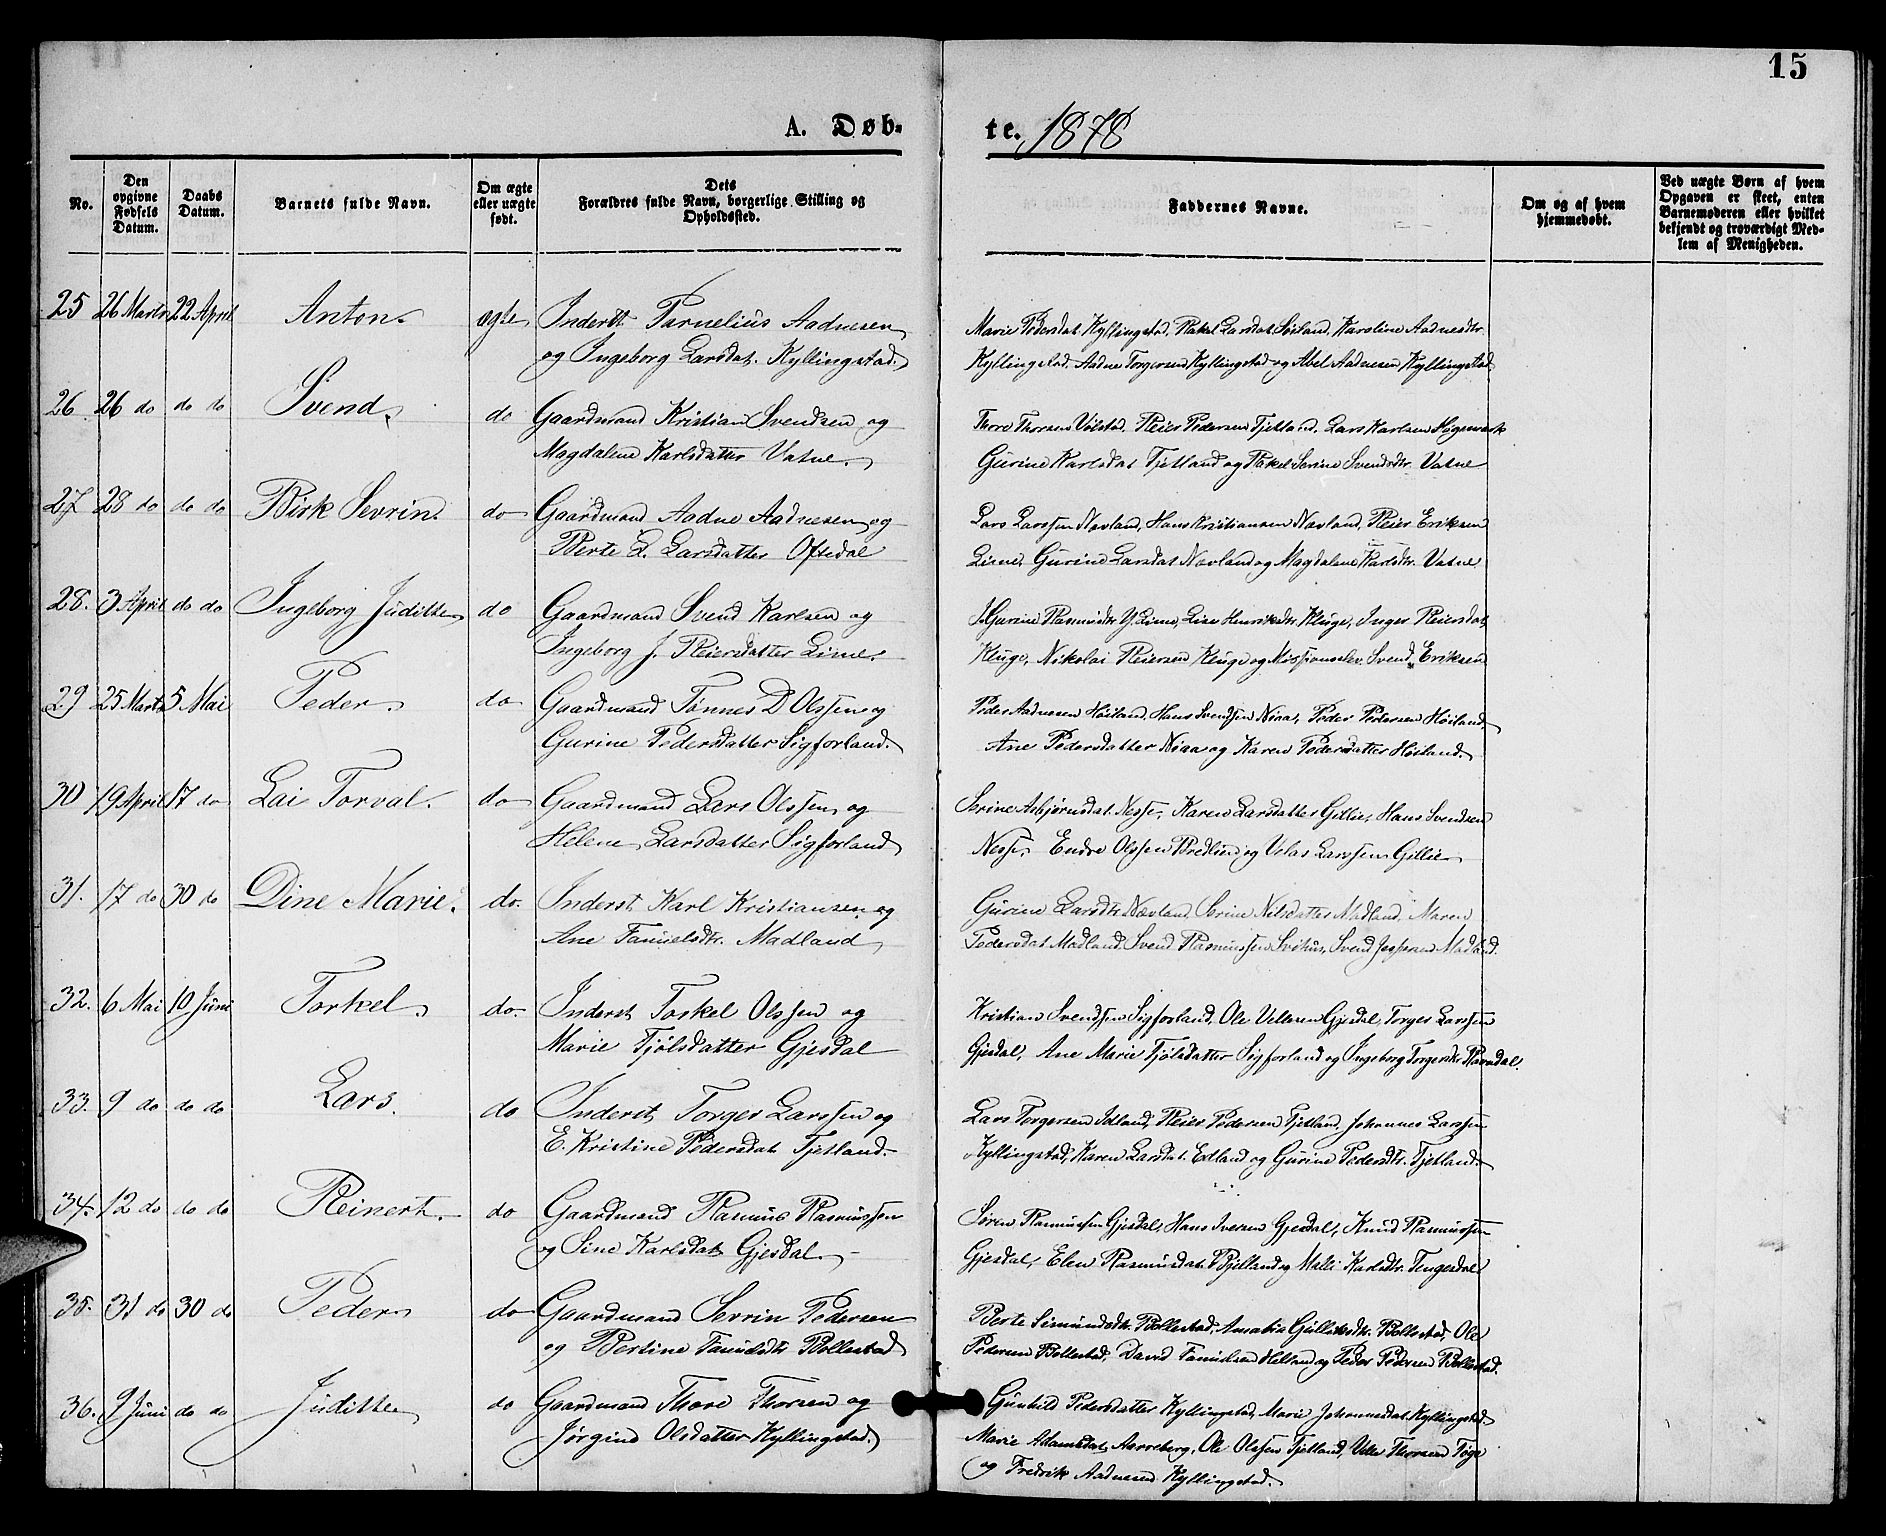 15
A. Døb-
te. 1878
No.
Den opgivne Fødsels Datum.
Daabs Datum.
Barnets fulde Navn.
Om ægte eller uægte født.
Dets Forældres fulde Navn, borgerlige Stilling og Opholdssted.
Faddernes Navne.
Om og af hvem hjemmedøbt.
Ved uægte Børn af hvem Opgaven er skeet, enten Barnemoderen eller hvilket bekjendt og troværdigt Medlem af Menigheden.
25 26 Marts 22 April Anton. ægte Inderst Parnelius Aadnesen
og Ingeborg Larsdat. Kyllingstad.
Marie Pedersdat. Kyllingstad, Rakel Larsdat. Søiland, Karoline Aadnesdtr.
Kyllingstad, Aadne Torgersen Kyllingstad og Abel Aadnesen Kyllingstad
26 26 do do do Svend. do Gaardmand Kristian Svendsen og
Magdalene Karlsdatter Vatne.
Thore Thorsen Vølstad, Reier Pedersen Tjetland, Lars Karlsen
Gurine Karlsdat Tjetland og Rakel Serine Svendsdtr. Vatne
27 28 do do do Birk Sevrin. do Gaardmand Aadne Aadnesen og
Berte L. Larsdatter Oftedal
Lars Larssen Nævland, Hans Kristiansen Nævland, Reier Eriksen
Lime, Gurine Larsdat Nævland og Magdalene Karlsdtr. Vatne
28. 3 April do do Ingeborg Juditte do Gaardmand Svend Karlsen og
Ingeborg J. Reiersdatter Lime.
Gurine Rasmusdtr Y. Lime, Lise Henriksdtr. Kluge, Inger Reiersdat,
Kluge, Nikolai Reiersen Kluge og Missionselev Svend Eriksen
29 25 Marts 5 Mai Peder. do Gaardmand Tønnes D Olssen og
Gurine Pedersdatter Sigforland.
Peder Aadnesen Høiland, Hans Svendsen Nøaa, Peder Pedersen Høiland,
Ane Pedersdatter Nøaa og Karen Pedersdatter Høiland.
30 19 April 17 do Lai Torval. do Gaardmand Lars Olssen og
Helene Larsdatter Sigforland
Serine Asbjørnsdat. Nesse, Karen Larsdatter Gillie, Hans Svendsen
Nesse, Endre Olssen Bredlien og Velas Larssen Gillie
31. 17 do 30 do Dine Marie. do. Inderst Karl Kristiansen og
Ane Tanielsdtr. Madland
Gurine Larsdtr Nævland, Serine Nilsdatter Madland, Maren
Pedersdat Madland, Svend Rasmussen, Svend Jespersen Madland.
32. 6 Mai 10 Juni Torkel. do. Inderst Torkel Olssen og
Marie Tjølsdatter Gjesdal
Kristian Svendsen Sigforland, Ole Vellesen Gjesdal, Torger Larssen
Gjesdal, Ane Marie Tjølsdatter Sigforland og Ingeborg Torgersdtr. Ravndal.
33. 9 do do do Lars. do Inderst Torger Larssen og
E. Kristine Pedersdat Tjetland.
Lars Torgersen Edland, Reier Pedersen Tjetland, Johannes Larssen
Kyllingstad, Karen Larsdat. Edland og Gurine Pedersdtr. Tjetland.
34. 12 do do do Reinert. do Gaardmand Rasmus Rasmussen
og Sine Karlsdat Gjesdal.
Søren Rasmussen Gjesdal, Hans Iversen Gjesdal, Knud Rasmussen
Gjesdal, Elen Rasmusdat. Bjelland og Malli Karlsdtr. Tengesdal
35. 31 do 30 do Peder do Gaardmand Sevrin Pedersen
og Bertine Tanielsdtr Bollestad
Berte Simundsdtr. Bollestad, Amalia Gullaksdtr. Bollestad, Ole
Pedersen Bollestad, David Tanielsen Helland og Peder Pedersen Bollestad.
36. 9 Juni do do Juditte do Gaardmand Thore Thorsen og
Jørgine Olsdatter Kyllingstad.
Gunhild Pedersdatter Kyllingstad, Marie Johannesdat. Kyllingstad.
Marie Adamsdat Aarreberg, Ole Olssen Tjetland, Velle Thorsen
og Fredrik Aadnesen Kyllingstad.